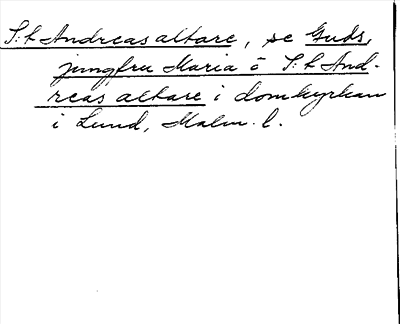 S:t Andreas altare, se Guds,
jungfru Maria o S:t And-
reas altare i domkyrkan
i Lund, Malm. l.